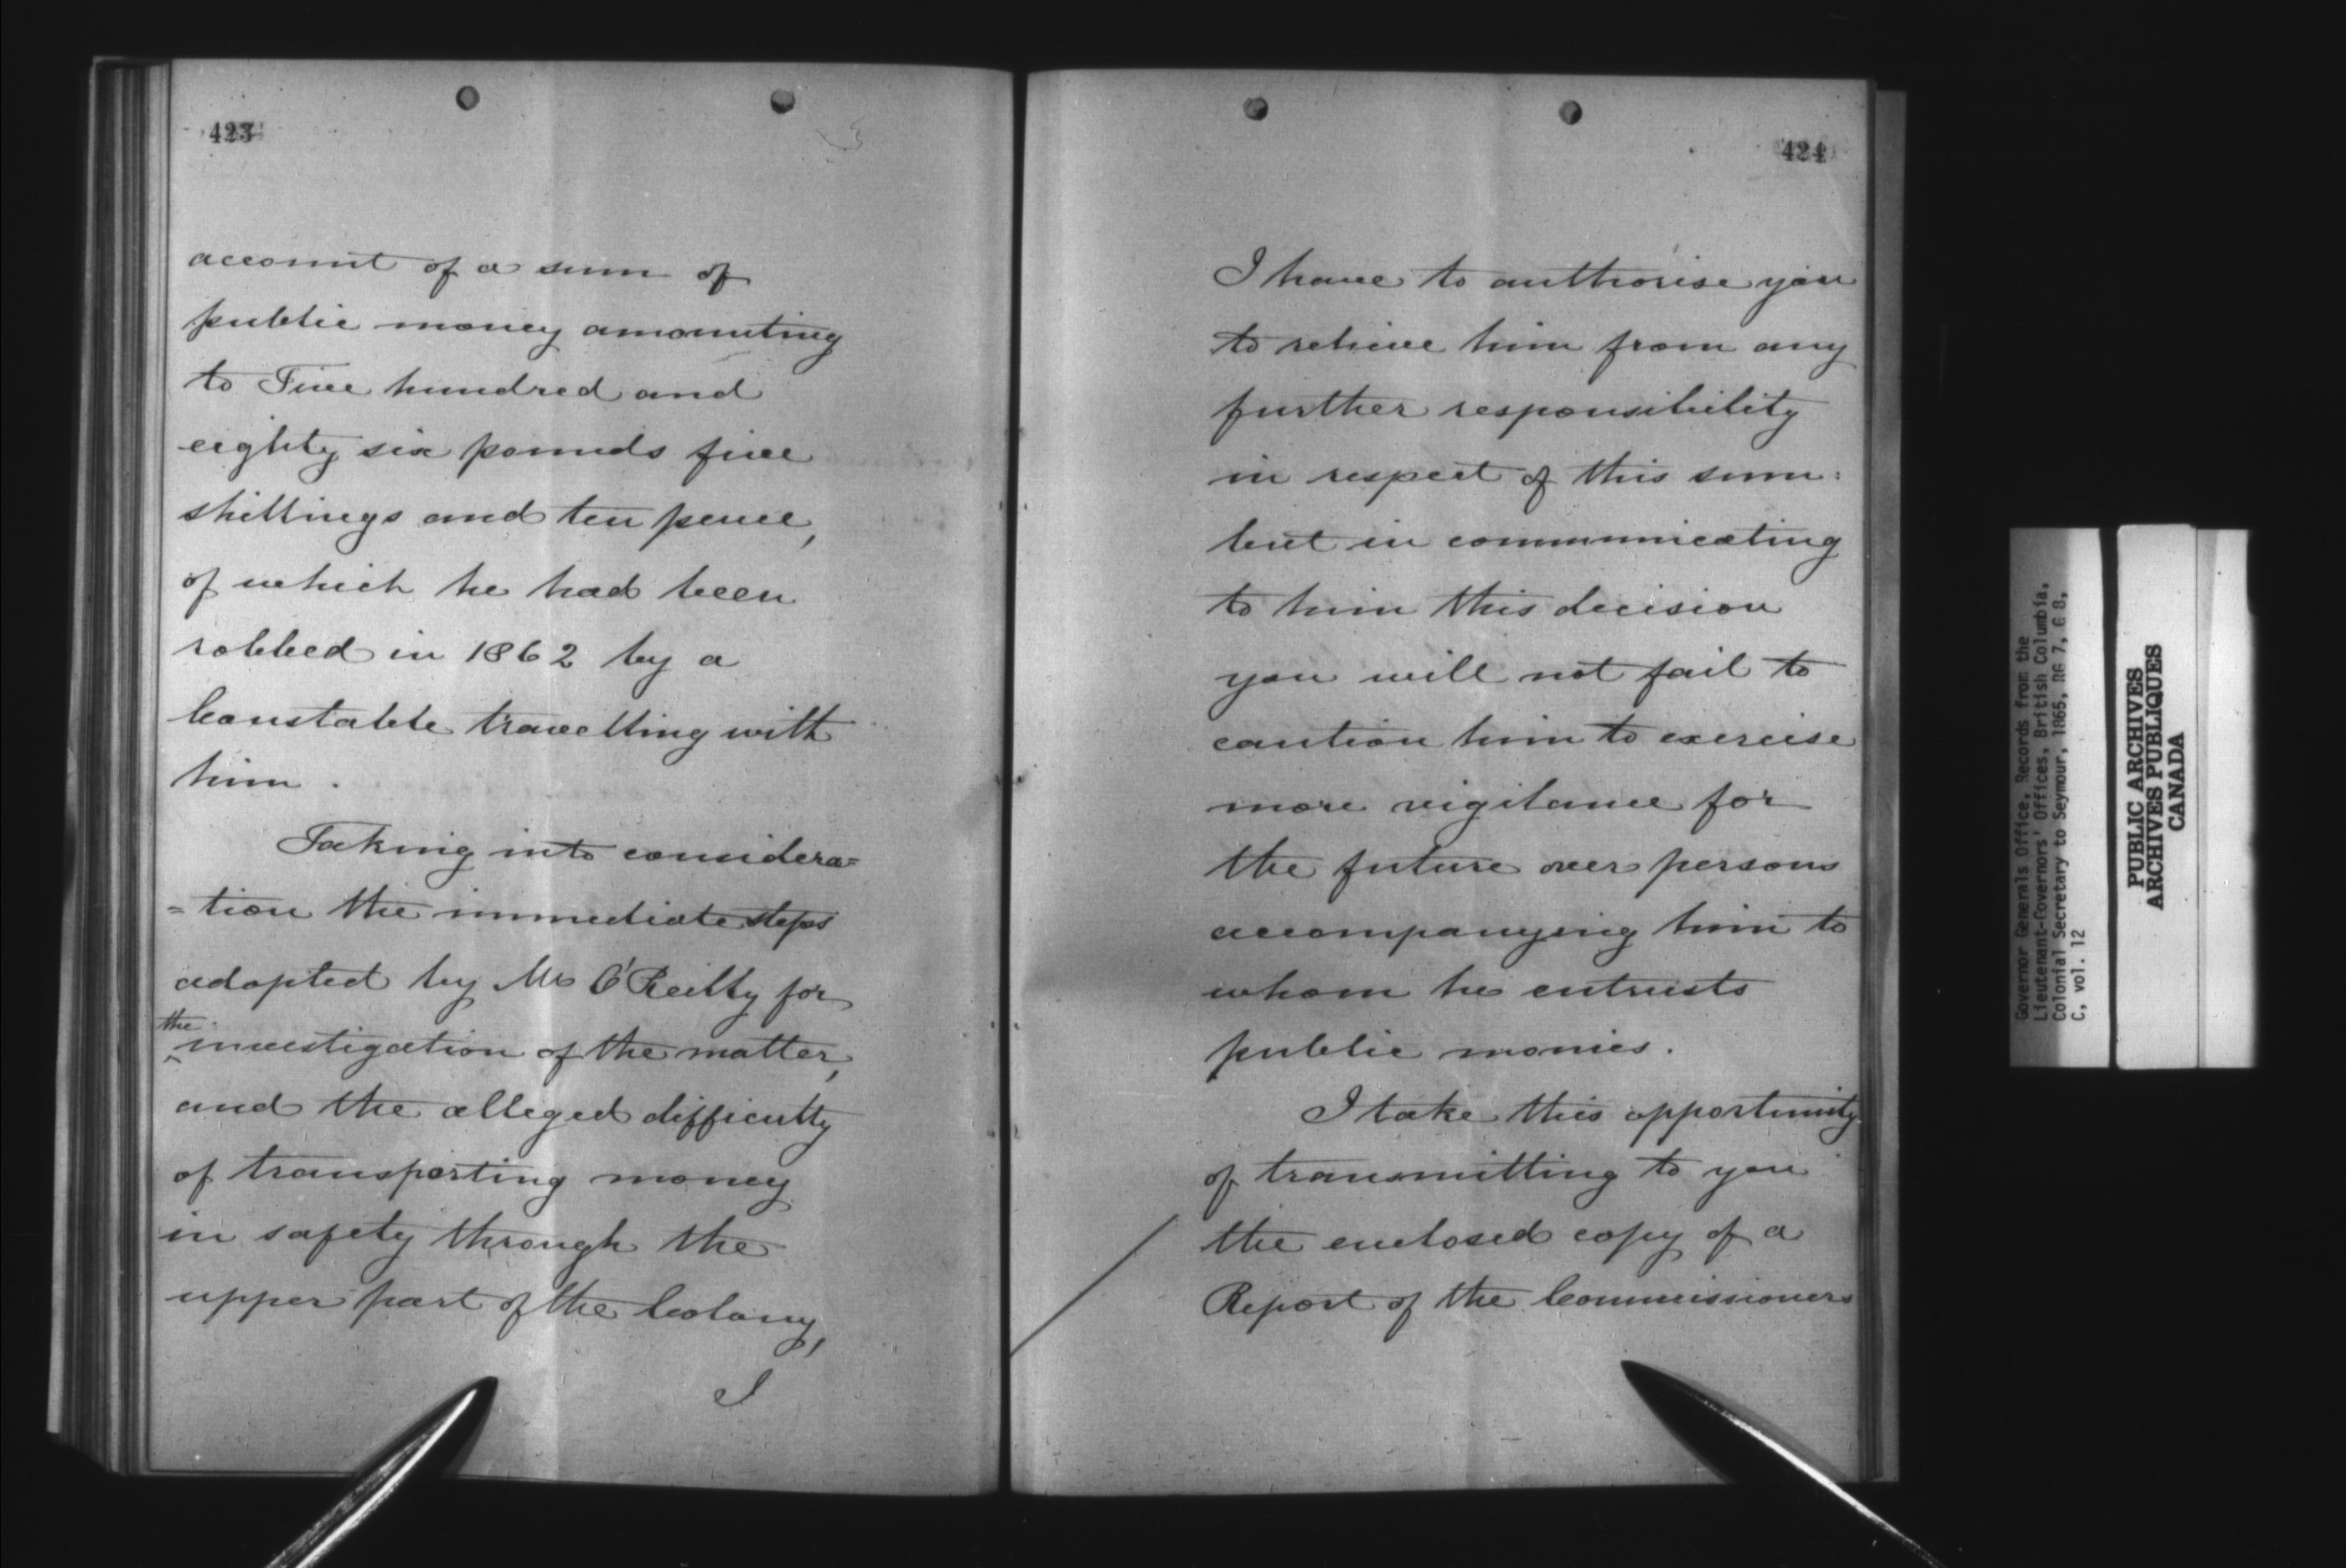 423
account of a sum of
public money amounting
to Five hundred and
eighty six pounds five
shillings and ten pence,
of which he had been
robbed in 1862 by a
Constable travelling with
him.
Taking into considera=
=tion the immediate steps
adopted by Mr O'Reilly for
the
investigation of the matter,
and the alleged difficulty
of transporting money
in safety through the
upper part of the Colony,
I
424
I have to authorise you
to relieve him from any
further responsibility
in respect of this sum:
but in communicating
to him this decision
you will not fail to
caution him to exercise
more vigilance for
the future over persons
accompanying him to
whom he entrusts
public monies.
I take this opportunity
of transmitting to you
the enclosed copy of a
Report of the Commissioners
Governor Generals Office, Records from the
Lieutenant-Governors' Offices, British Columbia,
Colonial Secretary to Seymour, 1865, RG 7, G 8,
C, vol. 12
PUBLIC ARCHIVES
ARCHIVES PUBLIQUES
CANADA